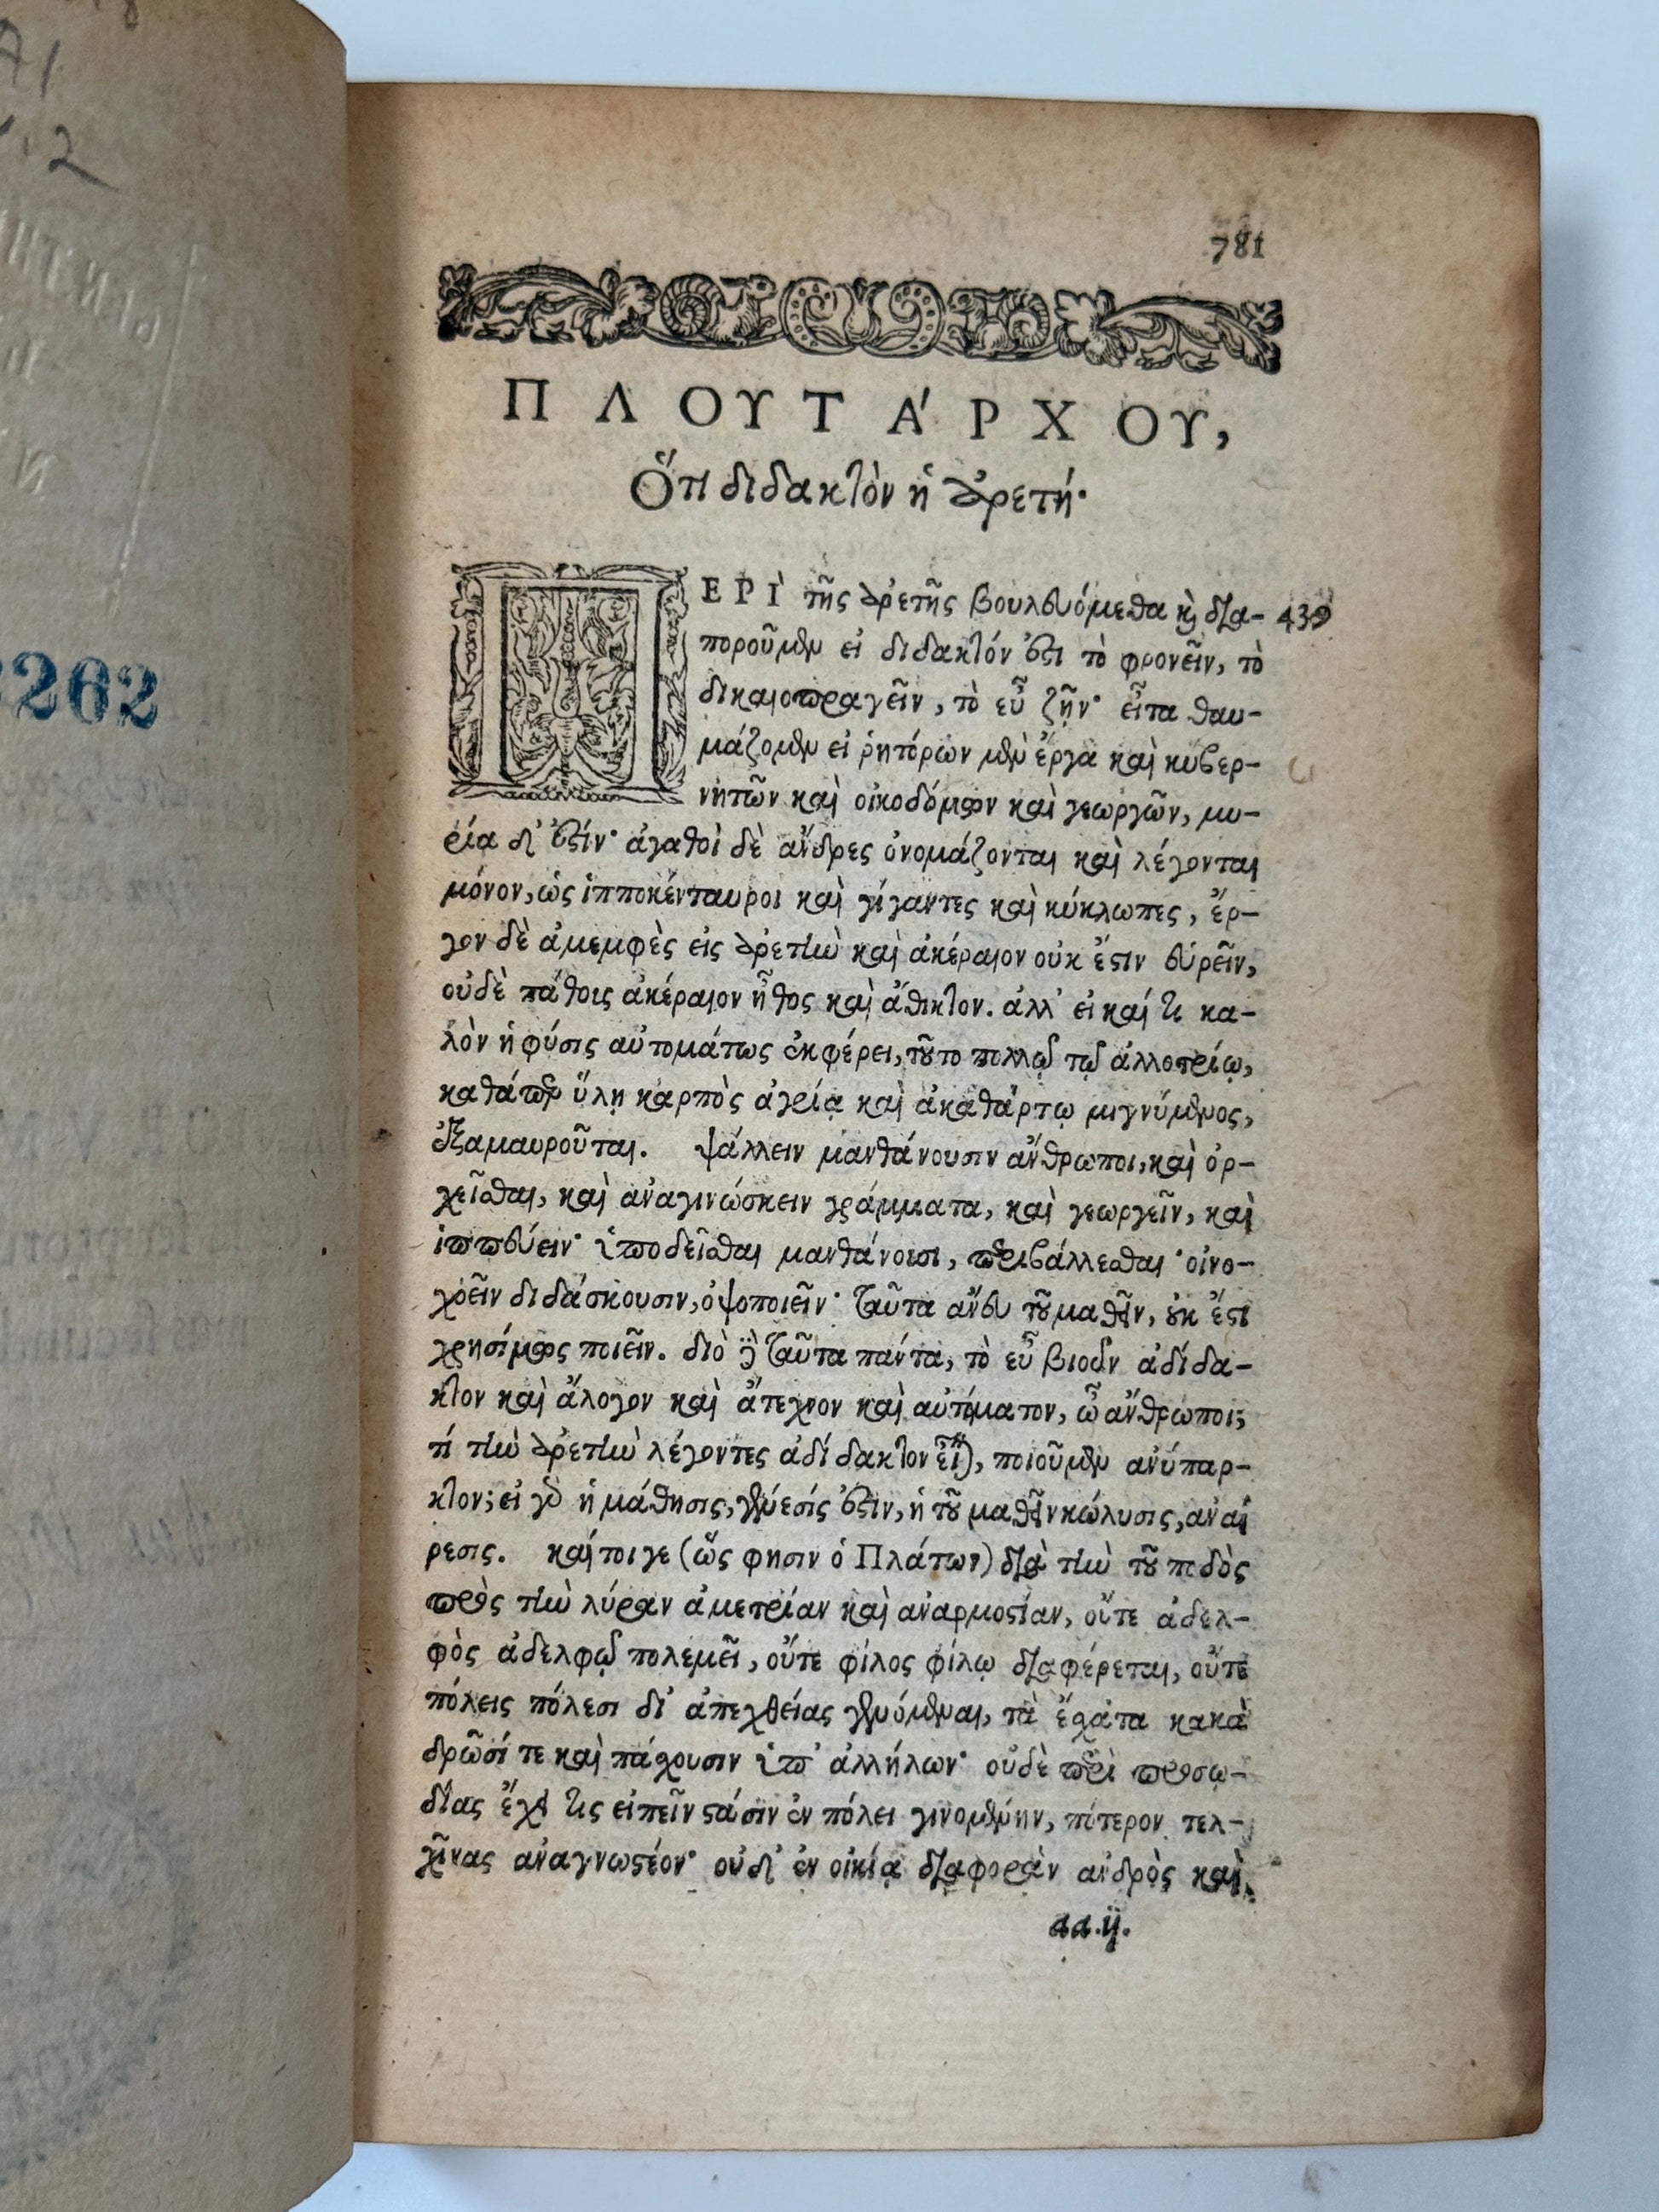 A1
v.2
262
781
ΠΛΟΥΤΑ΄ΡΧΟΥ,
Ὅτι διδακτὸν ἡ ἀρετή·
ΠΕΡΙ` τῆς ἀρετῆς βουλευόμεθα καὶ δια- 439
ποροῦμεν εἰ διδακτόν ἐστι τὸ φρονεῖν, τὸ
δικαιοπραγεῖν, τὸ εὖ ζῆν· εἶτα θαυ-
μάζομεν εἰ ῥητόρων μὲν ἔργα καὶ κυβερ-
νητῶν καὶ οἰκοδόμων καὶ γεωργῶν, μυ-
ρία δ' ἐστίν· ἀγαθοὶ δὲ ἄνδρες ὀνομάζονται καὶ λέγονται
μόνον, ὡς ἱπποκένταυροι καὶ γίγαντες καὶ κύκλωπες, ἔρ-
γον δὲ ἀμεμφὲς εἰς ἀρετὴν καὶ ἀκέραιον οὐκ ἔστιν εὑρεῖν,
οὐδὲ πάθοις ἀκέραιον ἦθος καὶ ἄθικτον. ἀλλ' εἰ καί τι κα-
λὸν ἡ φύσις αὐτομάτως ἐκφέρει, τοῦτο πολλῷ τῷ ἀλλοτρίῳ,
καθάπερ ὕλῃ καρπὸς ἀγρίᾳ καὶ ἀκαθάρτῳ μιγνύμενος,
ἐξαμαυροῦται. ψάλλειν μανθάνουσιν ἄνθρωποι, καὶ ὀρ-
χεῖσθαι, καὶ ἀναγινώσκειν γράμματα, καὶ γεωργεῖν, καὶ
ἱππεύειν· ὑποδεῖσθαι μανθάνουσι, περιβάλλεσθαι· οἰνο-
χοεῖν διδάσκουσιν, ὀψοποιεῖν· ταῦτα ἄνευ τοῦ μαθεῖν, οὐκ ἔστι
χρησίμως ποιεῖν. διὸ δὲ ταῦτα πάντα, τὸ εὖ βιοῦν ἀδίδα-
κτον καὶ ἄλογον καὶ ἄτεχνον καὶ αὐτόματον, ὦ ἄνθρωποι;
τί τὴν ἀρετὴν λέγοντες ἀδίδακτον εἶναι, ποιοῦμεν ἀνύπαρ-
κτον; εἰ γὰρ ἡ μάθησις, γένεσίς ἐστιν, ἡ τοῦ μαθεῖν κώλυσις, ἀναί
ρεσις. καίτοι γε (ὥς φησιν ὁ Πλάτων) διὰ τὴν τοῦ ποδὸς
πρὸς τὴν λύραν ἀμετρίαν καὶ ἀναρμοστίαν, οὔτε ἀδελ-
φὸς ἀδελφῷ πολεμεῖ, οὔτε φίλος φίλῳ διαφέρεται, οὔτε
πόλεις πόλεσι δι' ἀπεχθείας γενόμεναι, τὰ ἔσχατα κακὰ
δρῶσί τε καὶ πάσχουσιν ὑπ' ἀλλήλων· οὐδὲ περὶ προσῳ-
δίας ἔχει τις εἰπεῖν στάσιν ἐν πόλει γινομένην, πότερον τελ-
χῖνας ἀναγνωστέον· οὐδ' ἐν οἰκίᾳ διαφορὰν ἀνδρὸς καὶ
aa.ij.